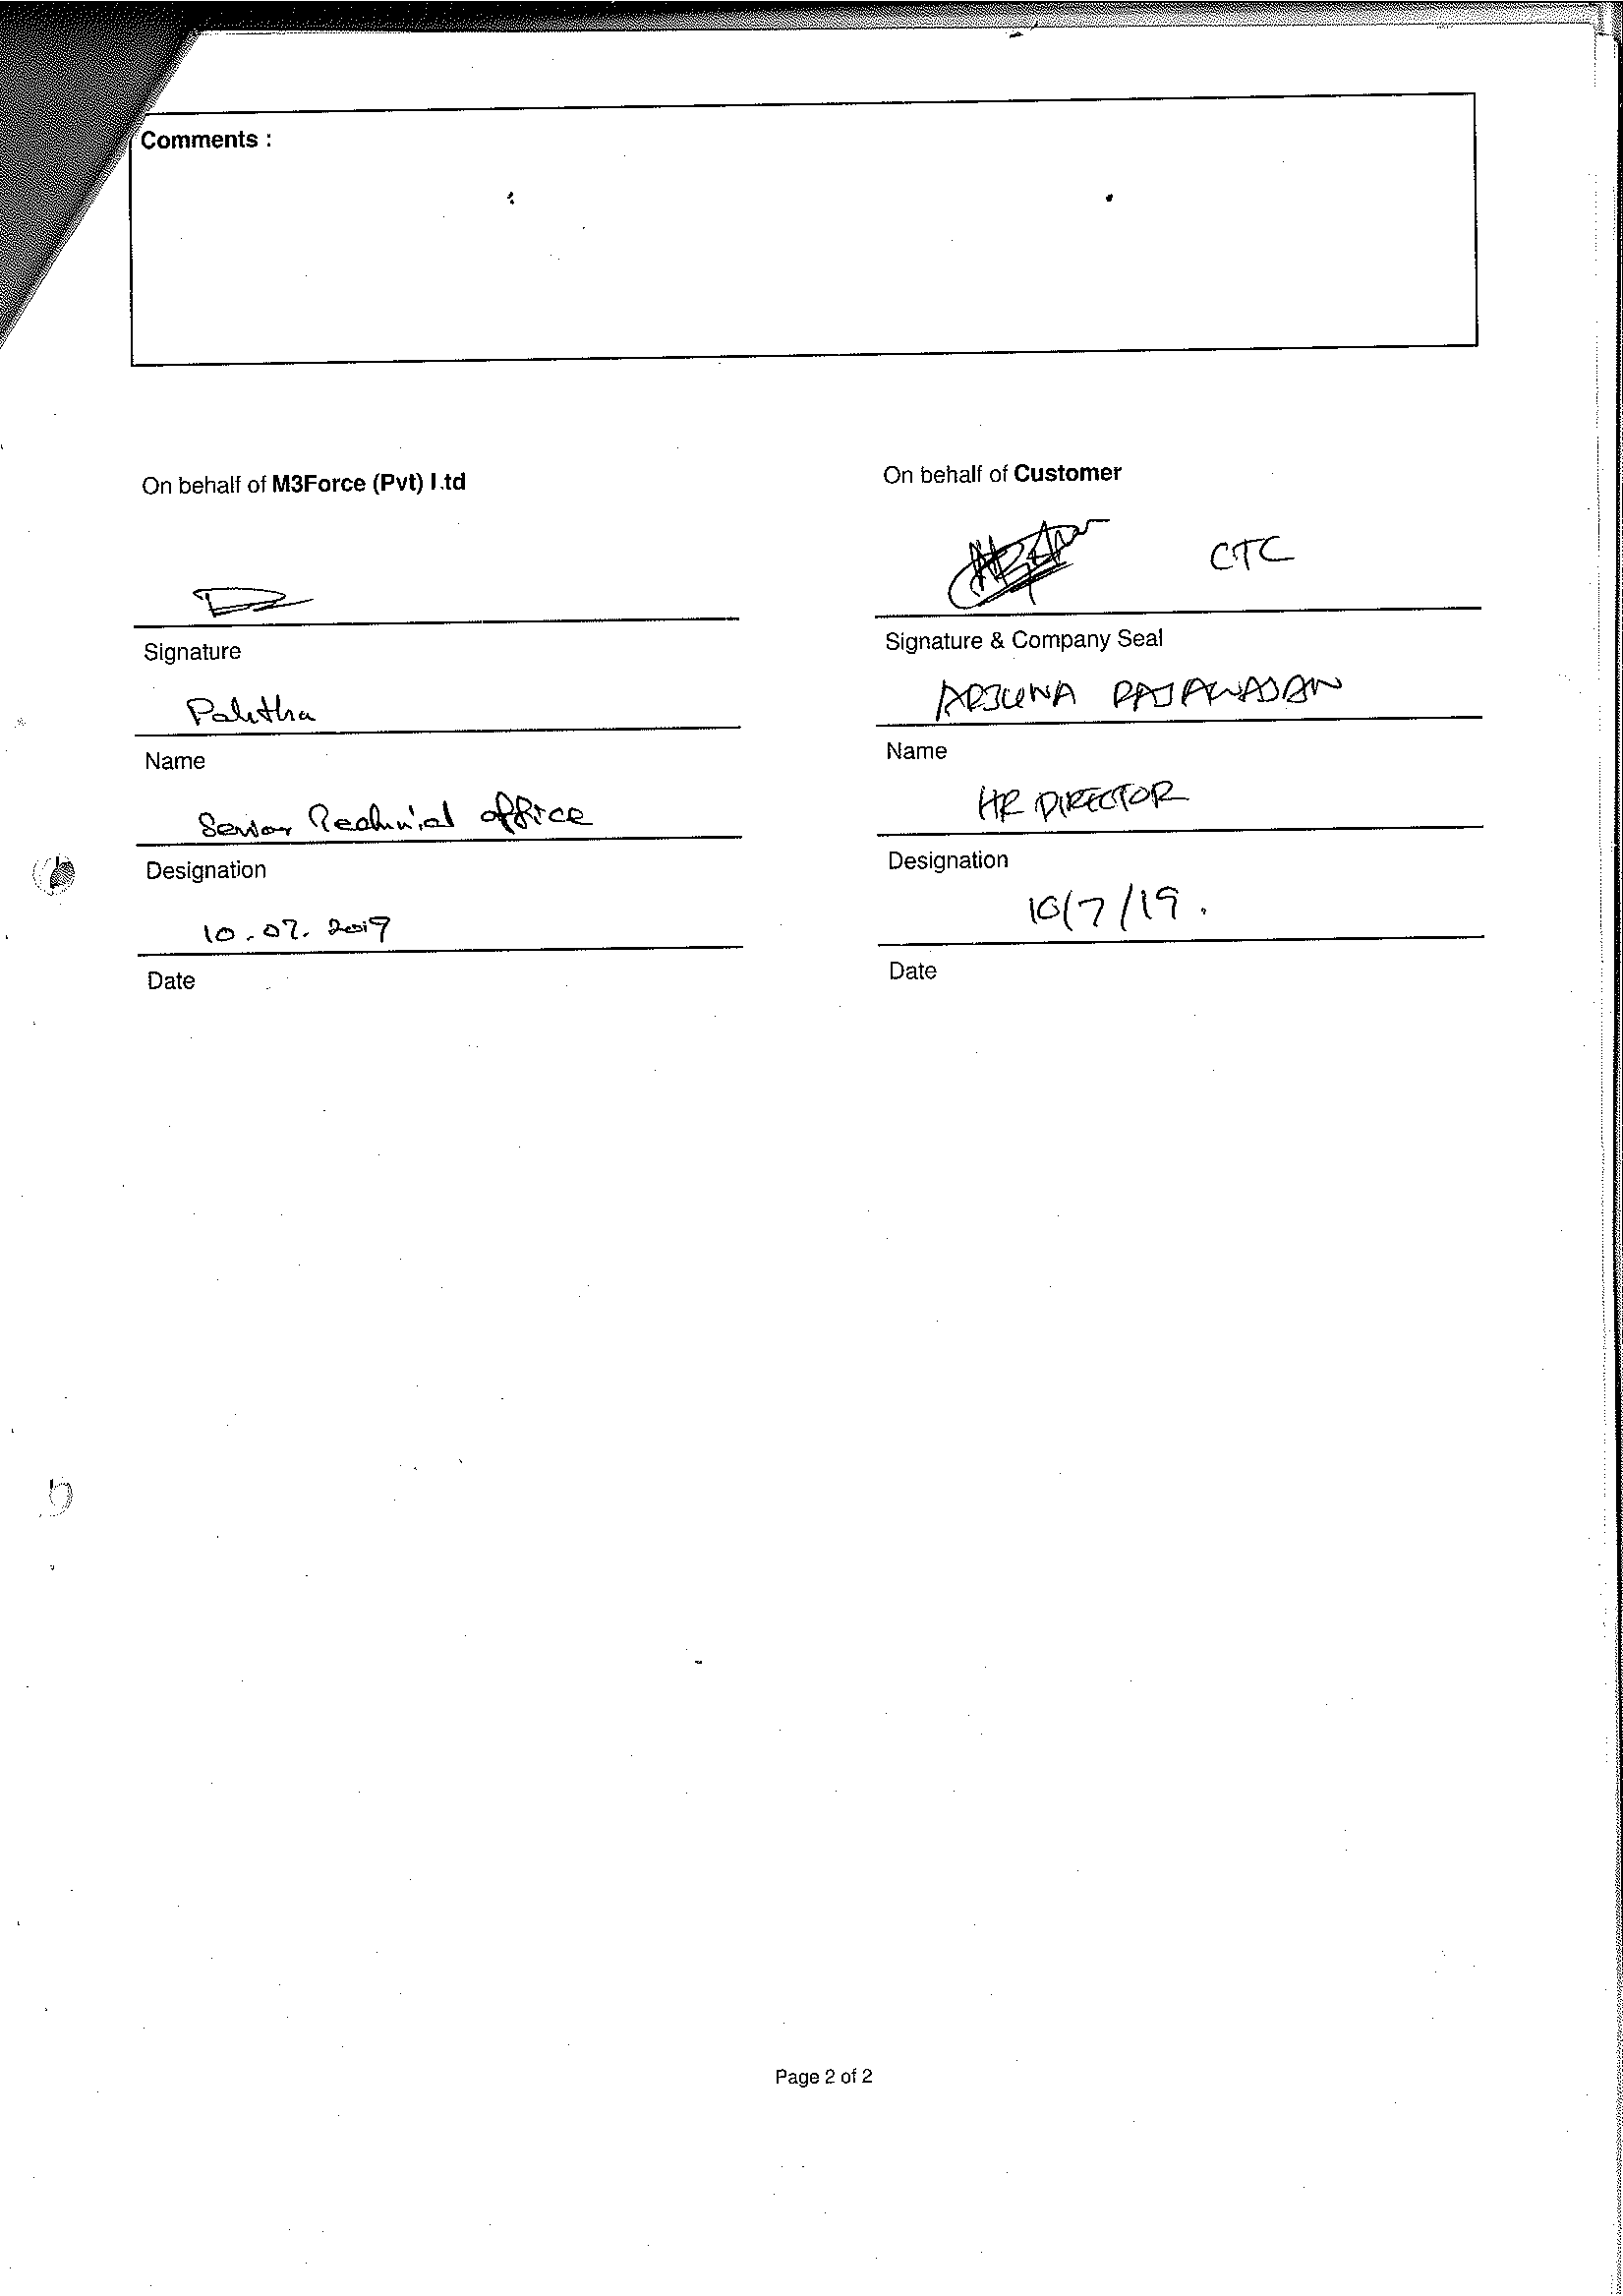 Comments :
On behalf of M3Force (Pvt) Ltd
Signature
Palitha
Name
Senior Technical office
Designation
10.07.2019
Date
On behalf of Customer
CTC
Signature & Company Seal
ARJUNA
Name
HR DIRECTOR
Designation
10/7/19.
Date
Page 2 of 2